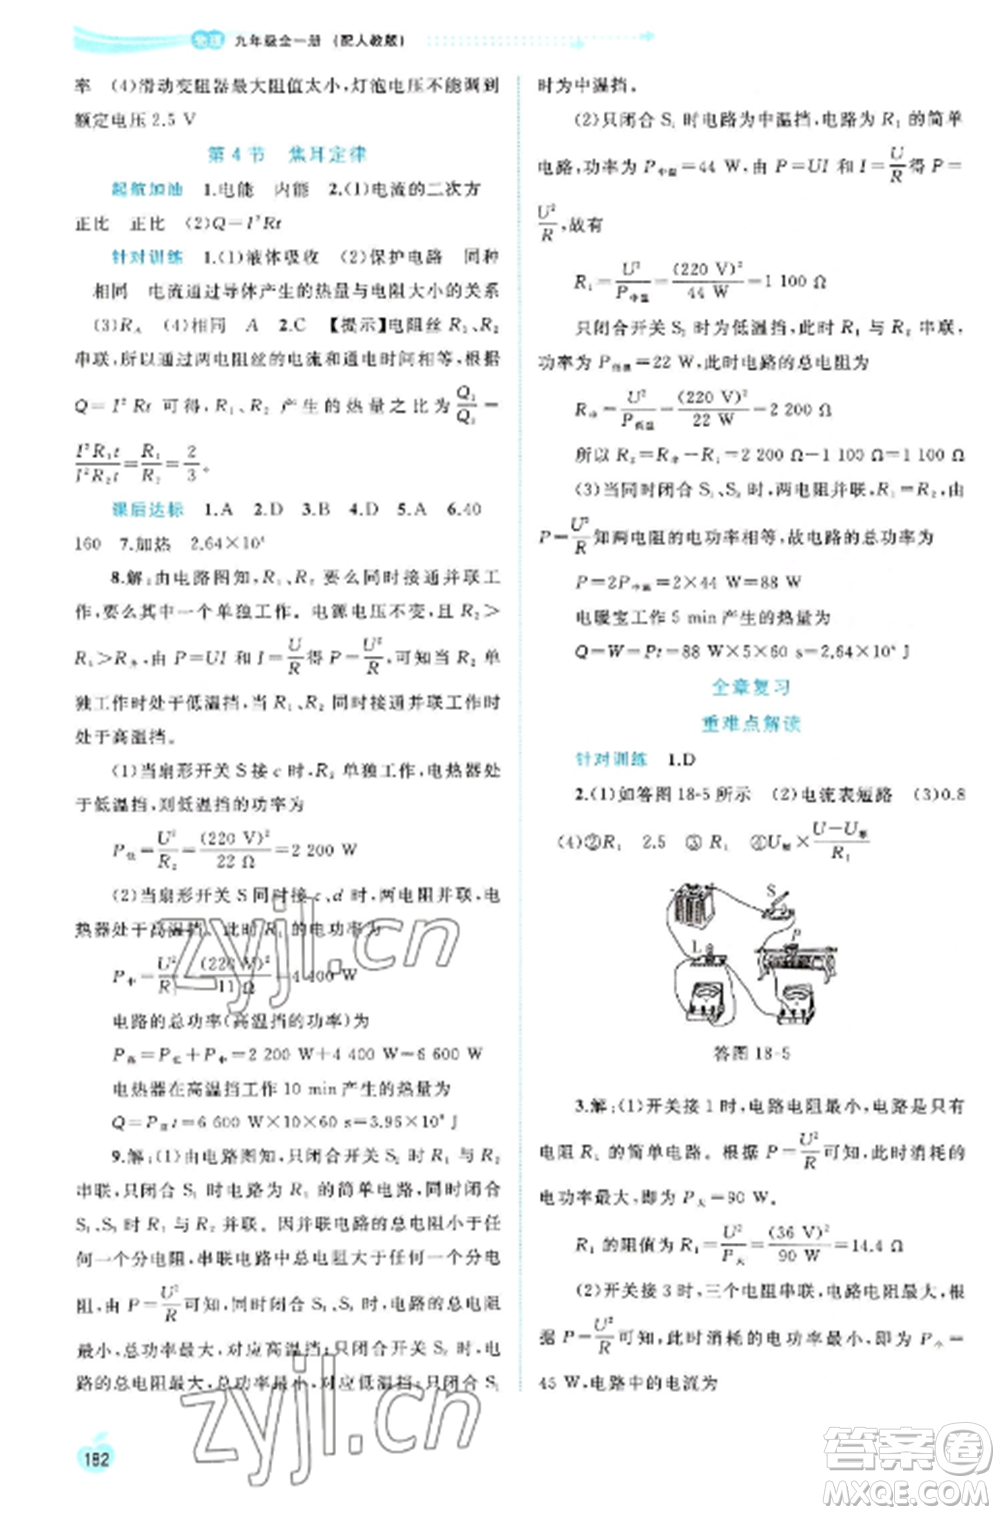 物理 九年级全一册 (配人教版)
率 (4)滑动变阻器最大阻值太小,灯泡电压不能调到
额定电压 2.5 V
第 4 节 焦耳定律
起航加油 1.电能 内能 2.(1)电流的二次方
正比 正比 (2)Q=I²Rt
针对训练 1.(1)液体吸收 (2)保护电路 同种
相同 电流通过导体产生的热量与电阻大小的关系
(3)R大 (4)相同 A 2.C 【提示】电阻丝 R₁、R₂
串联,所以通过两电阻丝的电流和通电时间相等,根据
Q=I²Rt 可得,R₁、R₂ 产生的热量之比为 Q₁/Q₂=
I²R₁t/I²R₂t=R₁/R₂=2/3。
课后达标 1.A 2.D 3.B 4.D 5.A 6.40
160 7.加热 2.64×10⁴
8.解:由电路图知,R₁、R₂ 要么同时接通并联工
作,要么其中一个单独工作。电源电压不变,且 R₂>
R₁>R并,由 P=UI 和 I=U/R得 P=U²/R,可知当 R₂ 单
独工作时处于低温挡,当 R₁、R₂ 同时并联工作时
处于高温挡。
(1)当扇形开关 S 接 c 时,R₂ 单独工作,电热器处
于低温挡,此时低温挡的功率为
P低=U²/R₂=(220 V)²/22 Ω=2 200 W
(2)当扇形开关 S 同时接 c、d 时,两电阻并联,电
热器处于高温挡。此时 R₁ 的电功率为
P中=U²/R₁=(220 V)²/11 Ω=4 400 W
电路的总功率(高温挡的功率)为
P高=P低+P中=2 200 W+4 400 W=6 600 W
电热器在高温挡工作 10 min 产生的热量为
Q=P高t=6 600 W×10×60 s=3.96×10⁶ J
9.解:(1)由电路图知,只闭合开关 S₂ 时 R₁ 与 R₂
串联,只闭合 S₁ 时电路为 R₁ 的简单电路,同时闭合
S₁、S₃ 时 R₁ 与 R₂ 并联。因并联电路的总电阻小于任
何一个分电阻,串联电路中总电阻大于任一分电
阻,由 P=U²/R可知,同时闭合 S₁、S₃ 时,电路的总电阻
最小,总功率最大,对应高温挡;只闭合 S₂ 时,电
路的总电阻最大,总功率最小,对应低温挡;只闭合 S₁
182
时为中温挡。
(2)只闭合 S₁ 时电路为中温挡,电路为 R₁ 的简单
电路,功率为 P中温=44 W,由 P=UI 和 I=U/R得 P=
U²/R,故有
R₁=U²/P中温=(220 V)²/44 W=1 100 Ω
只闭合开关 S₂ 时为低温挡,此时 R₁ 与 R₂ 串联,
功率为 P低温=22 W,此时电路的总电阻为
R串=U²/P低温=(220 V)²/22 W=2 200 Ω
所以 R₂=R串−R₁=2 200 Ω−1 100 Ω=1 100 Ω
(3)当同时闭合 S₁、S₃ 时,两电阻并联,R₁=R₂,由
P=U²/R知两电阻的电功率相等,故电路的总功率为
P=2P中温=2×44 W=88 W
电暖宝工作 5 min 产生的热量为
Q=W=Pt=88 W×5×60 s=2.64×10⁴ J
全章复习
重难点解读
针对训练 1.D
2.(1)如答图 18-5 所示 (2)电流表短路 (3)0.8
(4)②R₁ 2.5 ③ R₁ ④U额×(U−U额)/R₁
S
L
P
答图 18-5
3.解:(1)开关接 1 时,电路电阻最小,电路是只有
电阻 R₁ 的简单电路。根据 P=U²/R可知,此时消耗的
电功率最大,即为 P大=90 W。
R₁ 的阻值为 R₁=U²/P大=(36 V)²/90 W=14.4 Ω
(2)开关接 3 时,三个电阻串联,电路电阻最大,根
据 P=U²/R可知,此时消耗的电功率最小,即为 P小=
45 W,电路中的电流为
zyjl.cn
zyjl.cn
答案圈
MXQE.COM